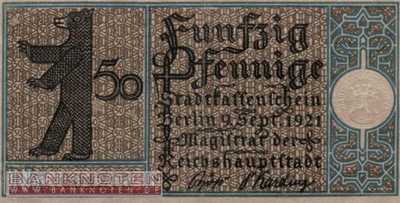 Funfzig
50 Pfennige
Stadtkassenschein
Berlin 9. Sept. 1921
Magistrat der
Reichshauptstadt
BANKNOTEN
WWW.BANKNOTEN.DE